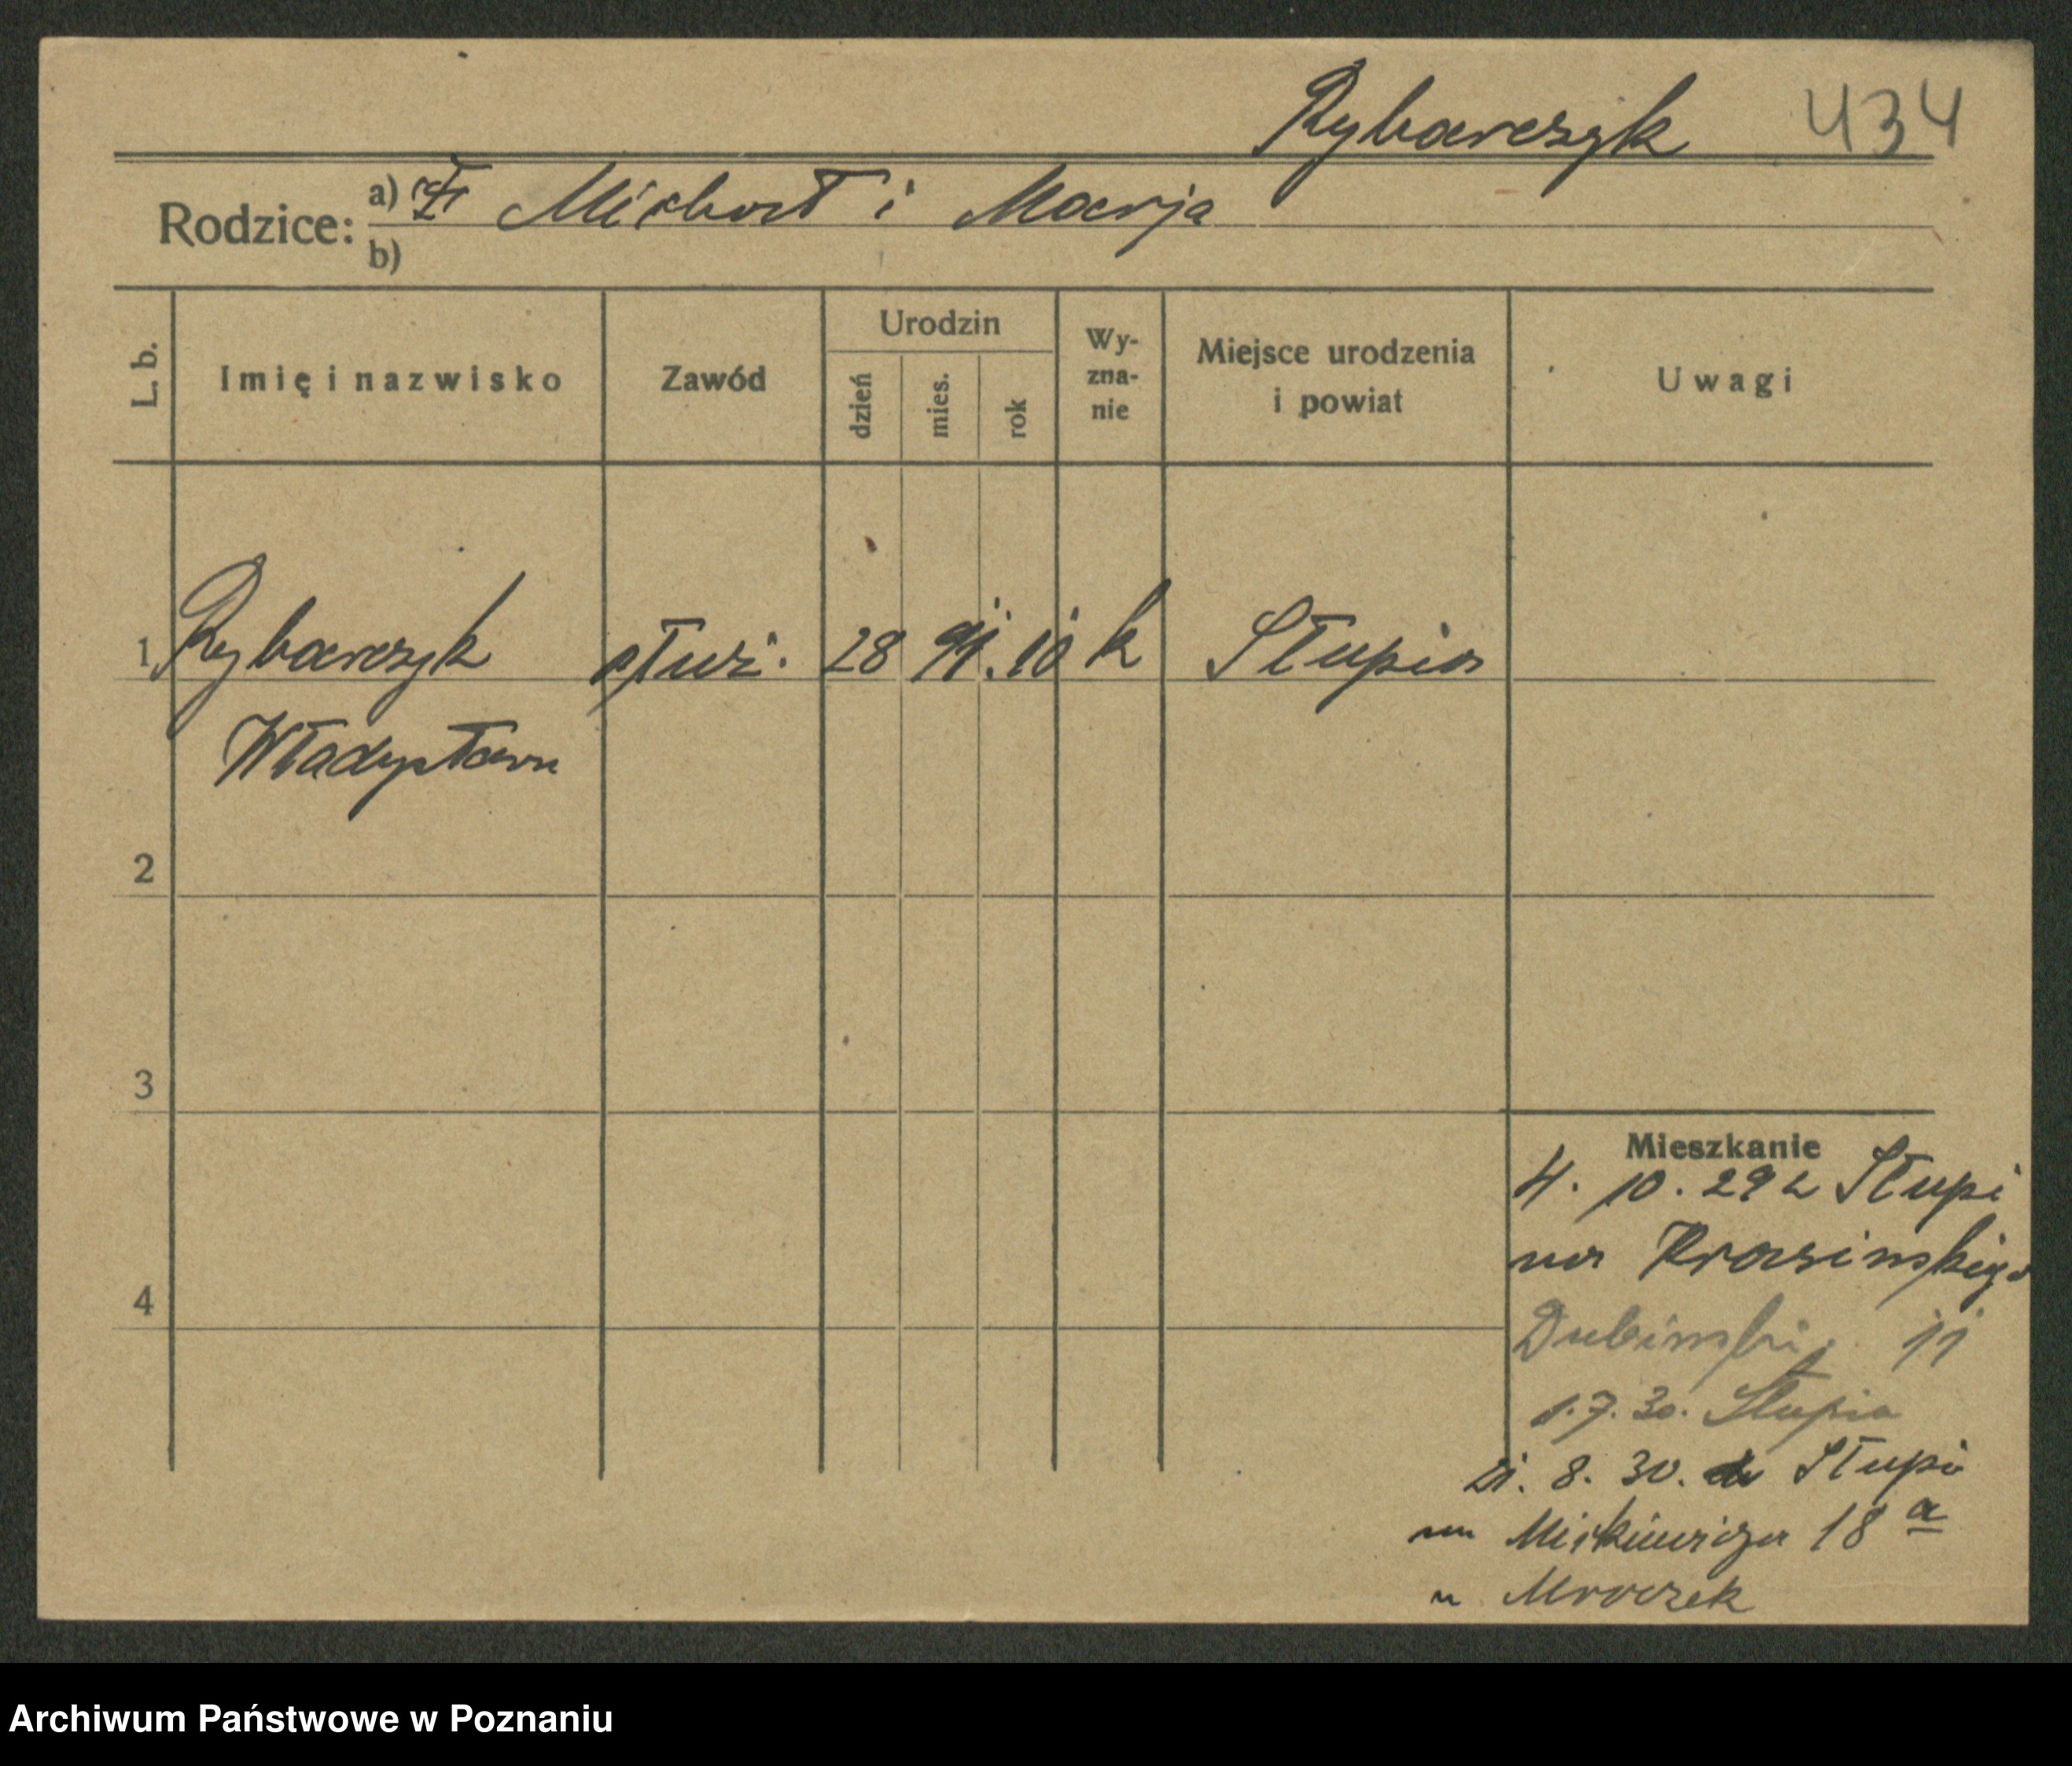 Rybarczyk 434
Rodzice: a) Michał i Marja
b)
L. b. Imię i nazwisko Zawód Urodzin dzień mies. rok Wy-zna-nie Miejsce urodzenia i powiat Uwagi
1 Rybarczyk służ. 28 10 k Słupia
Władysława
2
3
Mieszkanie
4. 10. 29 z Słupi
na Krasinskiego
4
Dubinski 11
1.7.30. Słupia
21. 8. 30. Słupi
na Mickiewicza 18 a
u Mroczek
Archiwum Państwowe w Poznaniu